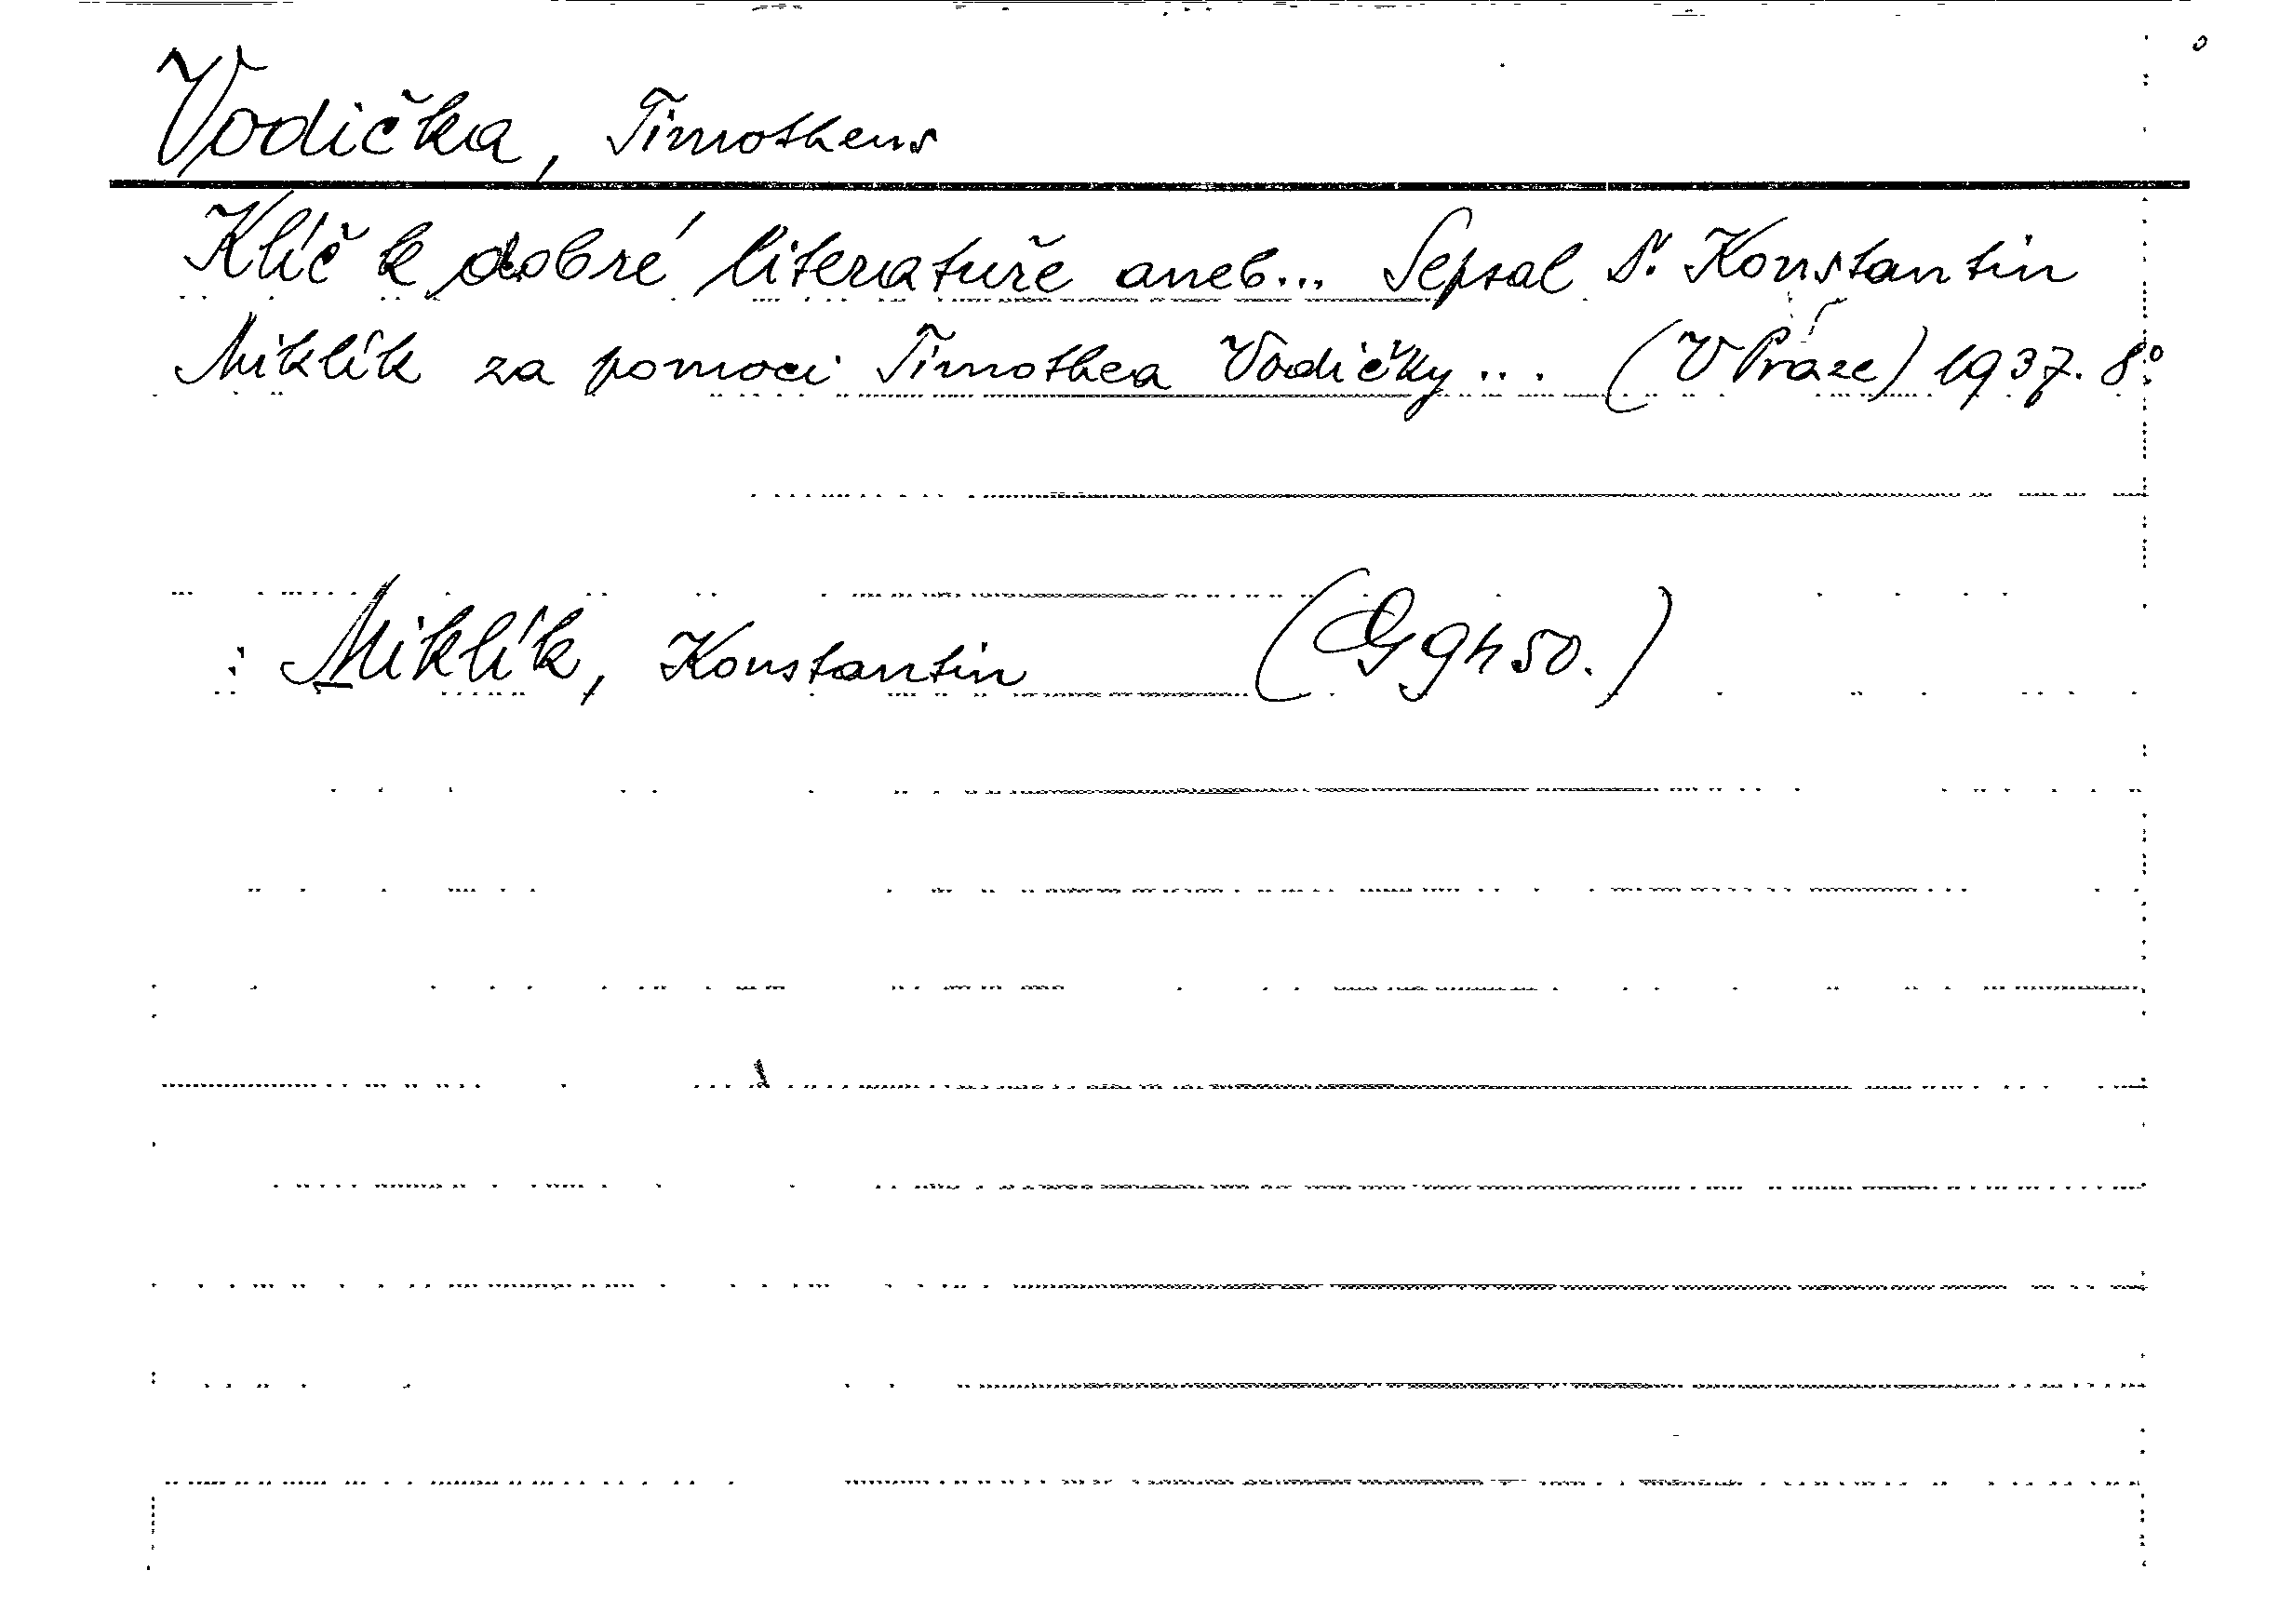 Vodička, Timotheus
Klíč k dobré literatuře aneb... Sepsal Dr. Konstantin
Miklík za pomoci Timothea Vodičky... (V Praze) 1937. 8°.
: Miklík, Konstantin (G 9 h 50.)